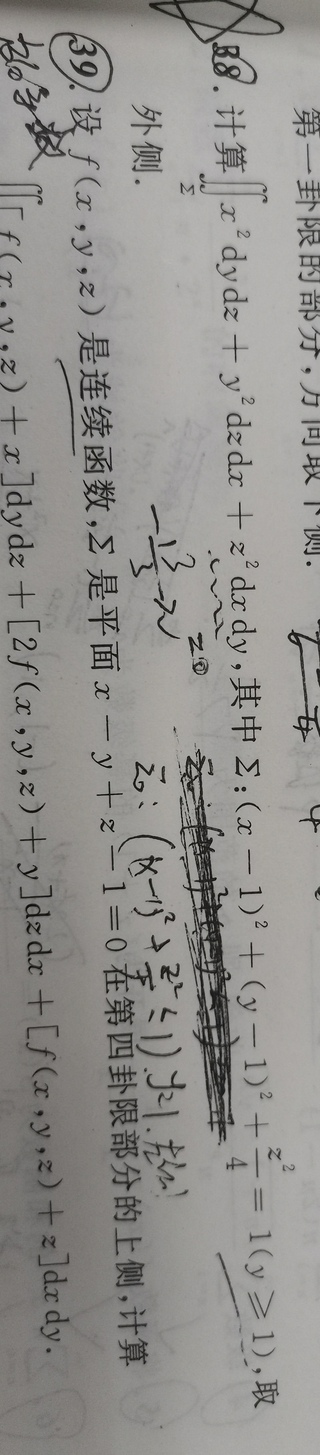 第一卦限的部分,方向取下侧.
38. 计算∬_Σ x²dydz + y²dzdx + z²dxdy,其中 Σ:(x-1)²+(y-1)²+z²/4=1(y≥1),取
外侧.
39. 设 f(x,y,z) 是连续函数,Σ 是平面 x-y+z-1=0 在第四卦限部分的上侧,计算
∬[f(x,y,z)+x]dydz+[2f(x,y,z)+y]dzdx+[f(x,y,z)+z]dxdy.